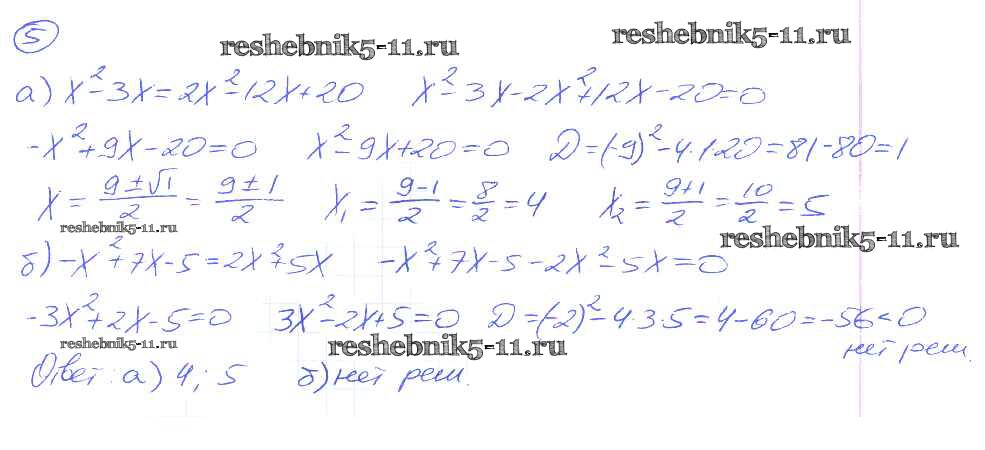 5
reshebnik5-11.ru reshebnik5-11.ru
а) x²-3x=2x²-12x+20 x²-3x-2x²+12x-20=0
-x²+9x-20=0 x²-9x+20=0 D=(-9)²-4·1·20=81-80=1
x=(9±√1)/2=(9±1)/2 x₁=(9-1)/2=8/2=4 x₂=(9+1)/2=10/2=5
reshebnik5-11.ru reshebnik5-11.ru
б) -x²+7x-5=2x²+5x -x²+7x-5-2x²-5x=0
-3x²+2x-5=0 3x²-2x+5=0 D=(-2)²-4·3·5=4-60=-56<0
reshebnik5-11.ru reshebnik5-11.ru нет реш.
Ответ: а) 4; 5 б) нет реш.